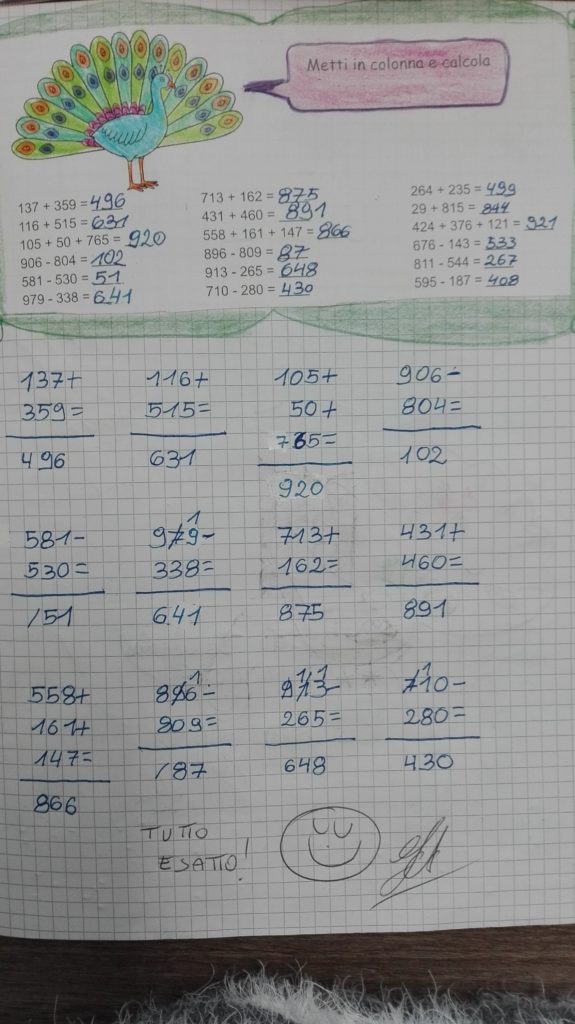 Metti in colonna e calcola
137 + 359 = 496
116 + 515 = 631
105 + 50 + 765 = 920
906 - 804 = 102
581 - 530 = 51
979 - 338 = 641
713 + 162 = 875
431 + 460 = 891
558 + 161 + 147 = 866
896 - 809 = 87
913 - 265 = 648
710 - 280 = 430
264 + 235 = 499
29 + 815 = 844
424 + 376 + 121 = 921
676 - 143 = 533
811 - 544 = 267
595 - 187 = 408
137+ 116+ 105+ 906-
359= 515= 50+ 804=
496 631 765= 102
920
1
581- 979- 713+ 431+
530= 338= 162= 460=
/51 641 875 891
1 1 1 1
558+ 896- 913- 710-
161+ 809= 265= 280=
147= /87 648 430
866
TUTTO
ESATTO!